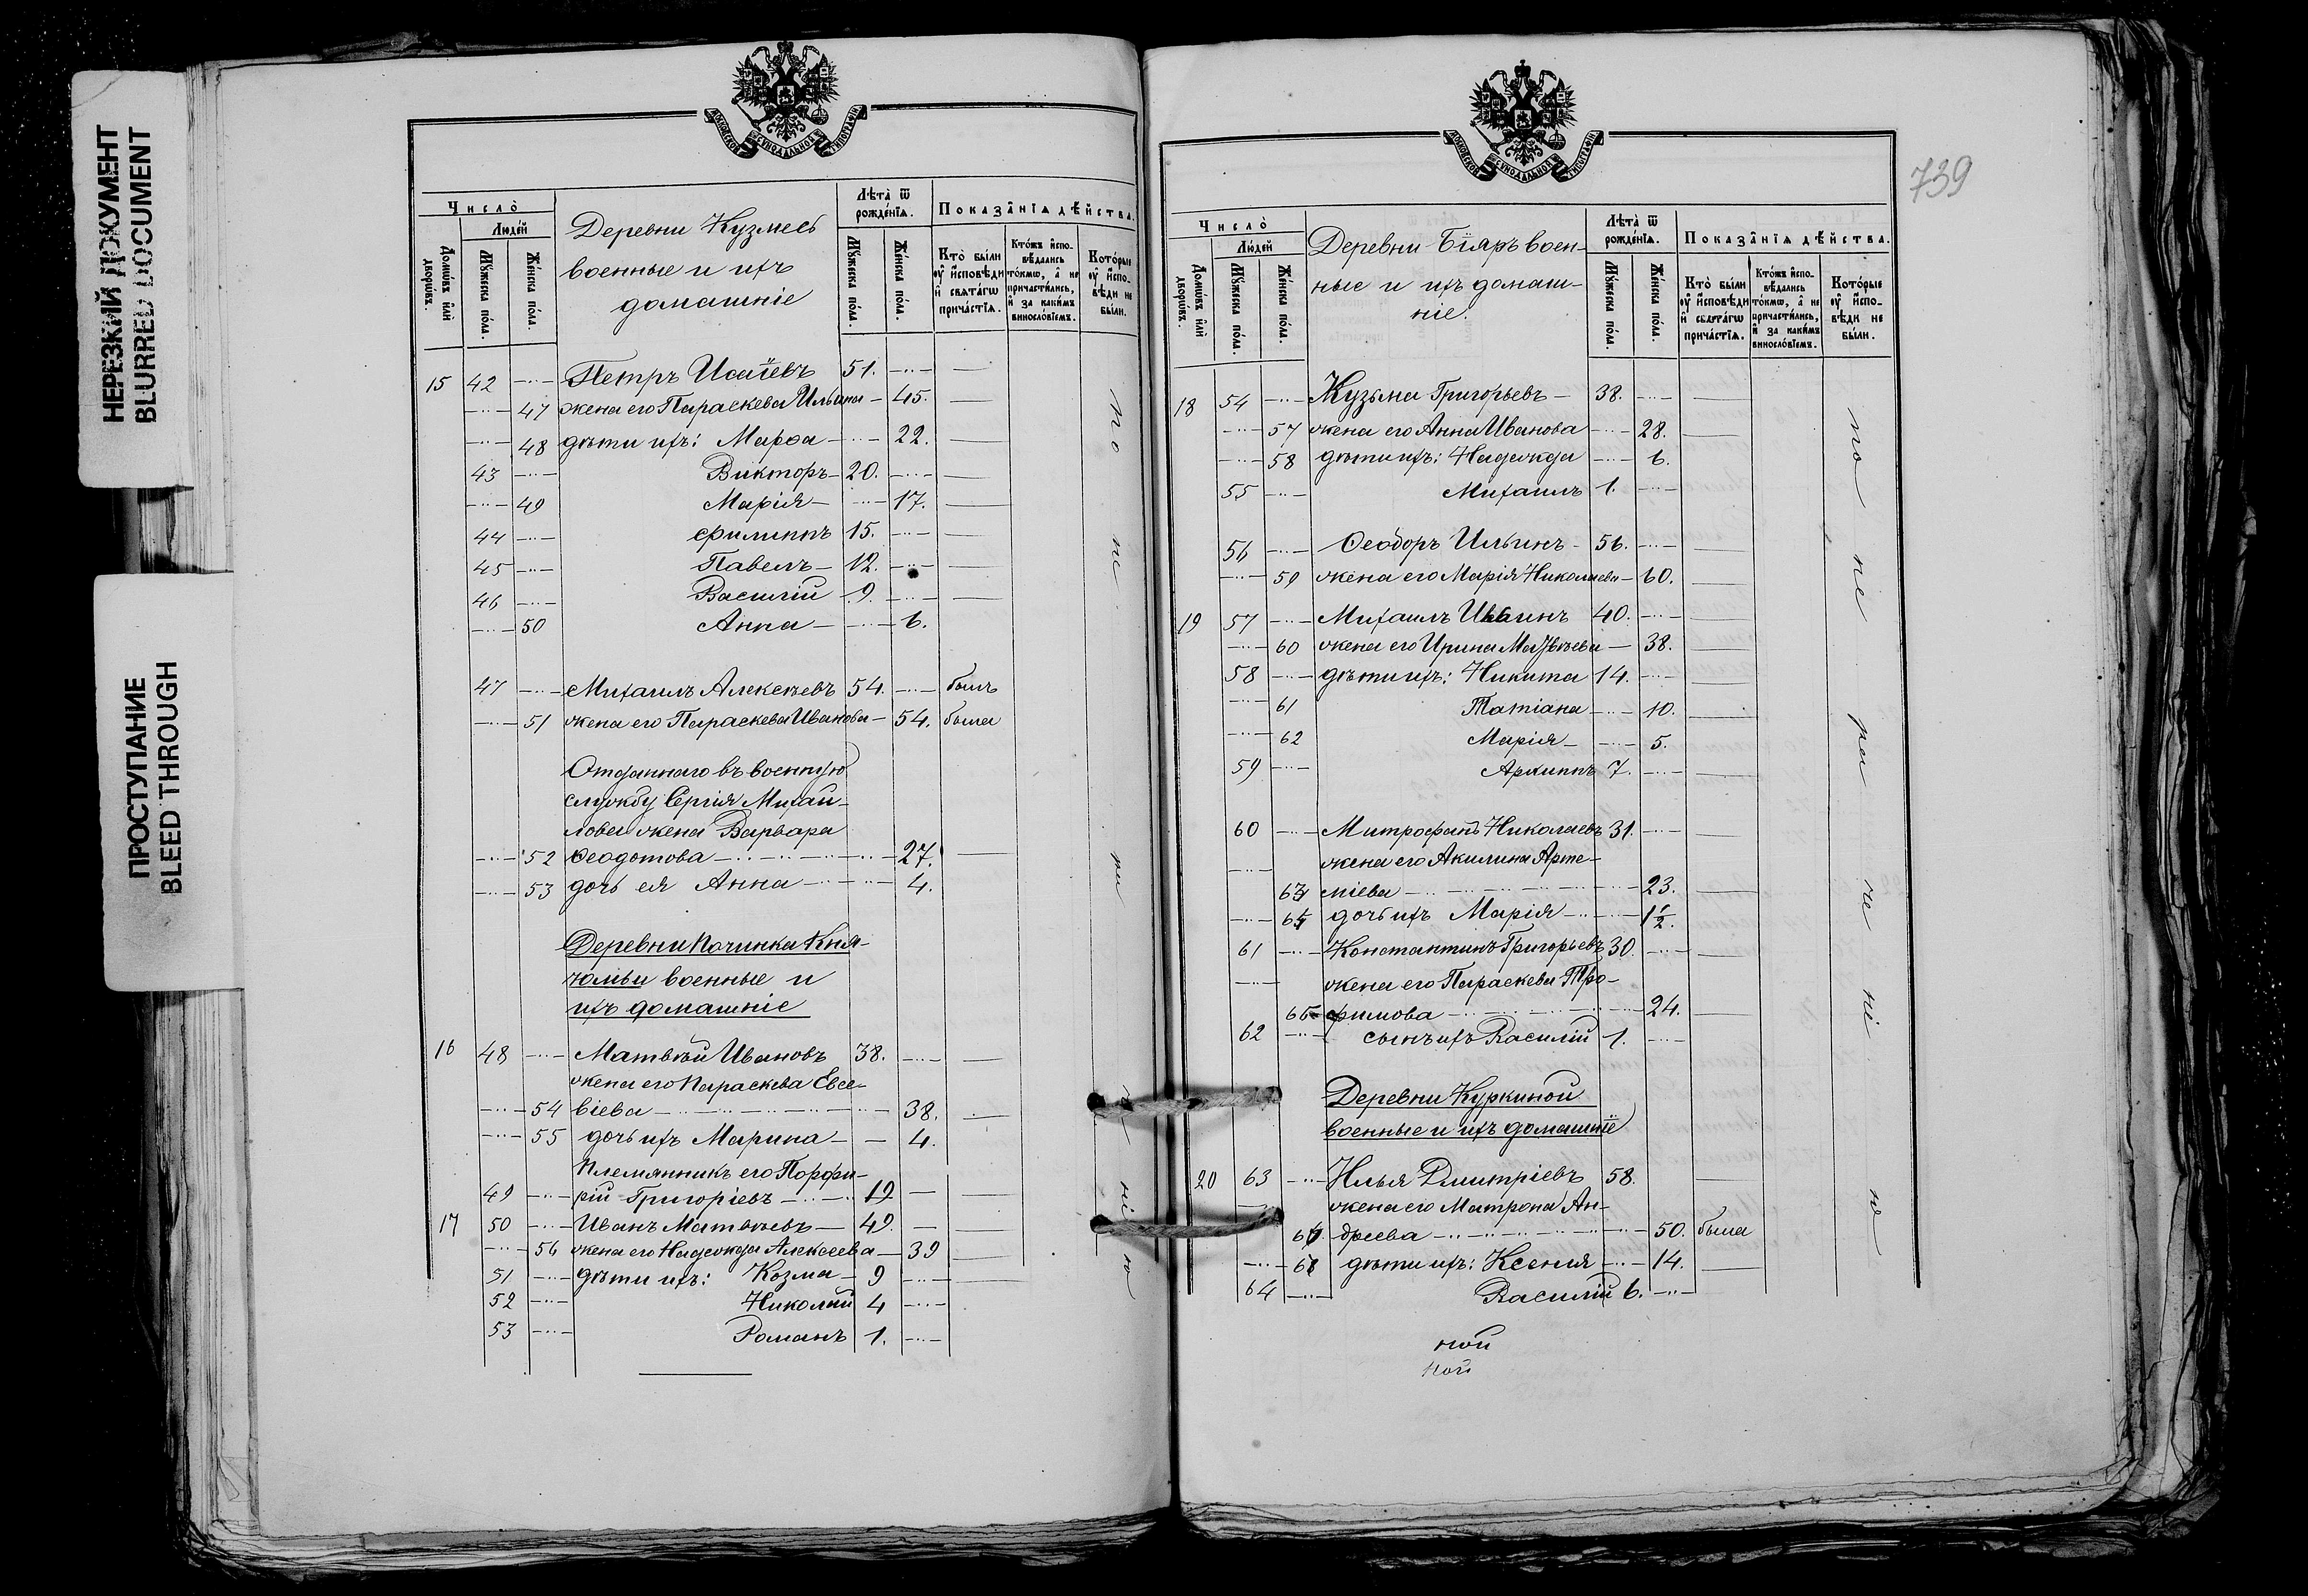 НЕРЕЗКИЙ ДОКУМЕНТ
BLURRED DOCUMENT
ПРОСТУПАНИЕ
BLEED THROUGH
МОСКОВСКОЙ СѴНОДАЛЬНОЙ ТИПОГРАФІИ
Число̀
Люде́й
Домѡ́въ и҆лѝ дворѡ́въ.
Мꙋ́жеска по́ла.
Же́нска по́ла.
Деревни Кузмесь
военные и ихъ
домашніе
Лѣта̀ ѿ рожде́нїѧ.
Мꙋ́жеска по́ла.
Же́нска по́ла.
Показа̑нїѧ дѣ́йства.
Кто̀ бы́ли ᲂу҆ и҆́сповѣди и҆ свѧта́гѡ прича́стїѧ.
Кто́жъ и҆спо-вѣ́дались то́кмѡ, а҆ не причасти́лись, и҆ за каки́мъ винословїемъ.
Кото́рые ᲂу҆ и҆́спо-вѣди не бы́ли.
15 42 —··— Петръ Исаіевъ 51. —··— —
—··— 47 жена его Параскева Ильина — 45. —
—··— 48 дѣти ихъ: Марѳа —··— 22. —
43 —··— Викторъ — 20. —··— —
—··— 49 Марія —··— 17. —
44 —··— Филиппъ 15. —··— —
45 —··— Павелъ — 12. —··— —
46 —··— Василій 9. —··— —
—··— 50 Анна —··— 6.
47 —··— Михаилъ Алексѣевъ 54. —··— былъ
—··— 51 жена его Параскева Иванова — 54. была
Отданнаго въ военную
службу Сергія Михай-
лова жена Варвара
—··— 52 Ѳеодотова —··—··— 27. —
—··— 53 дочь ея Анна —··— 4.
Деревни Починка Кня-
военные и
ихъ домашніе
16 48 —··— Матвѣй Ивановъ 38. —··— —
жена его Параскева Евсе-
—··— 54 віева —··—··— 38. —
—··— 55 дочь ихъ Марина — — 4.
Племянникъ его Порфи-
49 —··— рій Григоріевъ —··— 19 — —
17 50 —··— Иванъ Матвѣевъ — 49. — —
—··— 56 жена его Надежда Алексеева — 39 —
51 —··— дѣти ихъ: Козма — 9 —··— —
52 —··— Николай 4 —··—
53 —··— Романъ 1. —··—
по не ра че нію
739
МОСКОВСКОЙ СѴНОДАЛЬНОЙ ТИПОГРАФІИ
Число̀
Люде́й
Домѡ́въ и҆лѝ дворѡ́въ.
Мꙋ́жеска по́ла.
Же́нска по́ла.
Деревни Біяръ воен-
ные и ихъ домаш-
ніе.
Лѣта̀ ѿ рожде́нїѧ.
Мꙋ́жеска по́ла.
Же́нска по́ла.
Показа̑нїѧ дѣ́йства.
Кто̀ бы́ли ᲂу҆ и҆́сповѣди и҆ свѧта́гѡ прича́стїѧ.
Кто́жъ и҆спо-вѣ́дались то́кмѡ, а҆ не причасти́лись, и҆ за каки́мъ винословїемъ.
Кото́рые ᲂу҆ и҆́спо-вѣди не бы́ли.
18 54 —··— Кузьма Григорьевъ — 38. —··— —
—··— 57 жена его Анна Иванова —··— 28. —
—··— 58 дѣти ихъ: Надежда —··— 6.
55 —··— Михаилъ 1. —··—
56 —··— Ѳеодоръ Ильинъ — 56. —··— —
—··— 59 жена его Марія Николаева — 60. —
19 57 —··— Михаилъ Ильинъ 40. —··— —
—··— 60 жена его Ирина Матвѣева — 38. —
58 —··— дѣти ихъ: Никита 14. —··— —
—··— 61 Татіана —··— 10. —
—··— 62 Марія —··— 5.
59 —··— Архиппъ 7. —··— —
60 —··— Митрофанъ Николаевъ 31. —··— —
—··— жена его Акилина Арте-
63 міева —··—··— 23. —
—··— 64 дочь ихъ Марія —··— 1½.
61 —··— Константинъ Григорьевъ 30. —··— —
—··— жена его Параскева Тро-
65 фимова —··—··— 24. —
62 —··— сынъ ихъ Василій 1. —··—
Деревни Куркиной
военные и ихъ домашніе
20 63 —··— Илья Дмитріевъ 58. —
жена его Матрона Ан-
дреева —··—··— 50. была
—··— дѣти ихъ: Ксенія —··— 14. —
64 —··— Василій 6. —··—
ной
ной
по не ра че ні ю